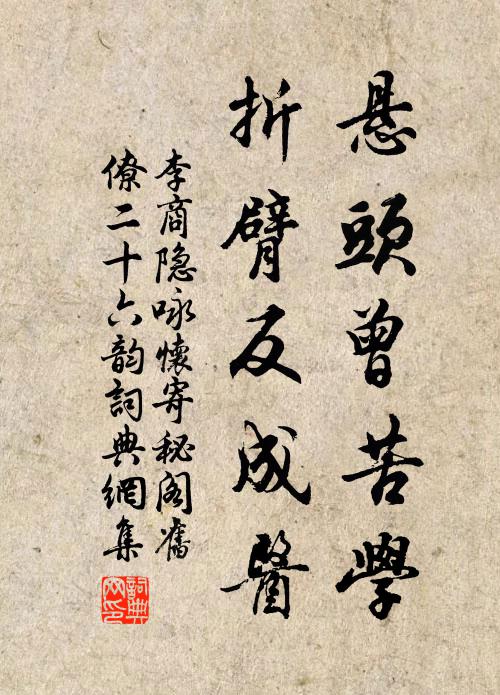 悬頭曾苦學
折臂反成醫
李商隐咏懷寄秘阁舊
僚二十六韵詞典網集
詞典网印